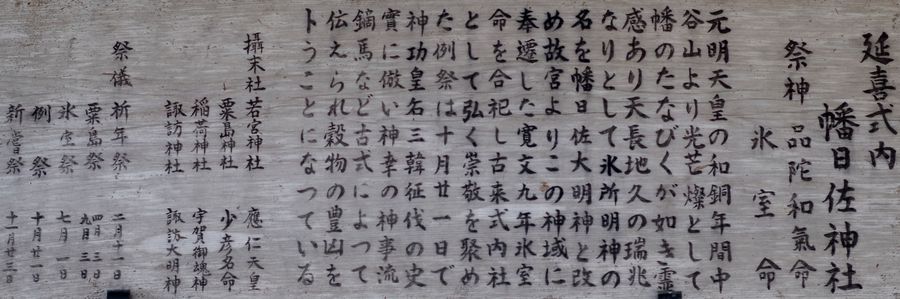 延喜式内
幡日佐神社
祭神 品陀和氣命
氷室命
元明天皇の和銅年間中
谷山より光芒燦として
幡のたなびくが如き霊
感あり天長地久の瑞兆
なりとして氷所明神の
名を幡日佐大明神と改
め故宮よりこの神域に
奉遷した寛文九年氷室
命を合祀し古来式内社
として弘く崇敬を聚め
た例祭は十月廿一日で
神功皇名三韓征伐の史
實に倣い神幸の神事流
鏑馬など古式によつて
伝えられ穀物の豊凶を
卜うことになつている
攝末社 若宮神社 應仁天皇
粟島神社 少彦名命
稲荷神社 宇賀御魂神
諏訪神社 諏訪大明神
祭儀 祈年祭 二月十一日
粟島祭 四月三日 九月三日
氷室祭 七月一日
例祭 十月廿一日
新嘗祭 十一月廿三日